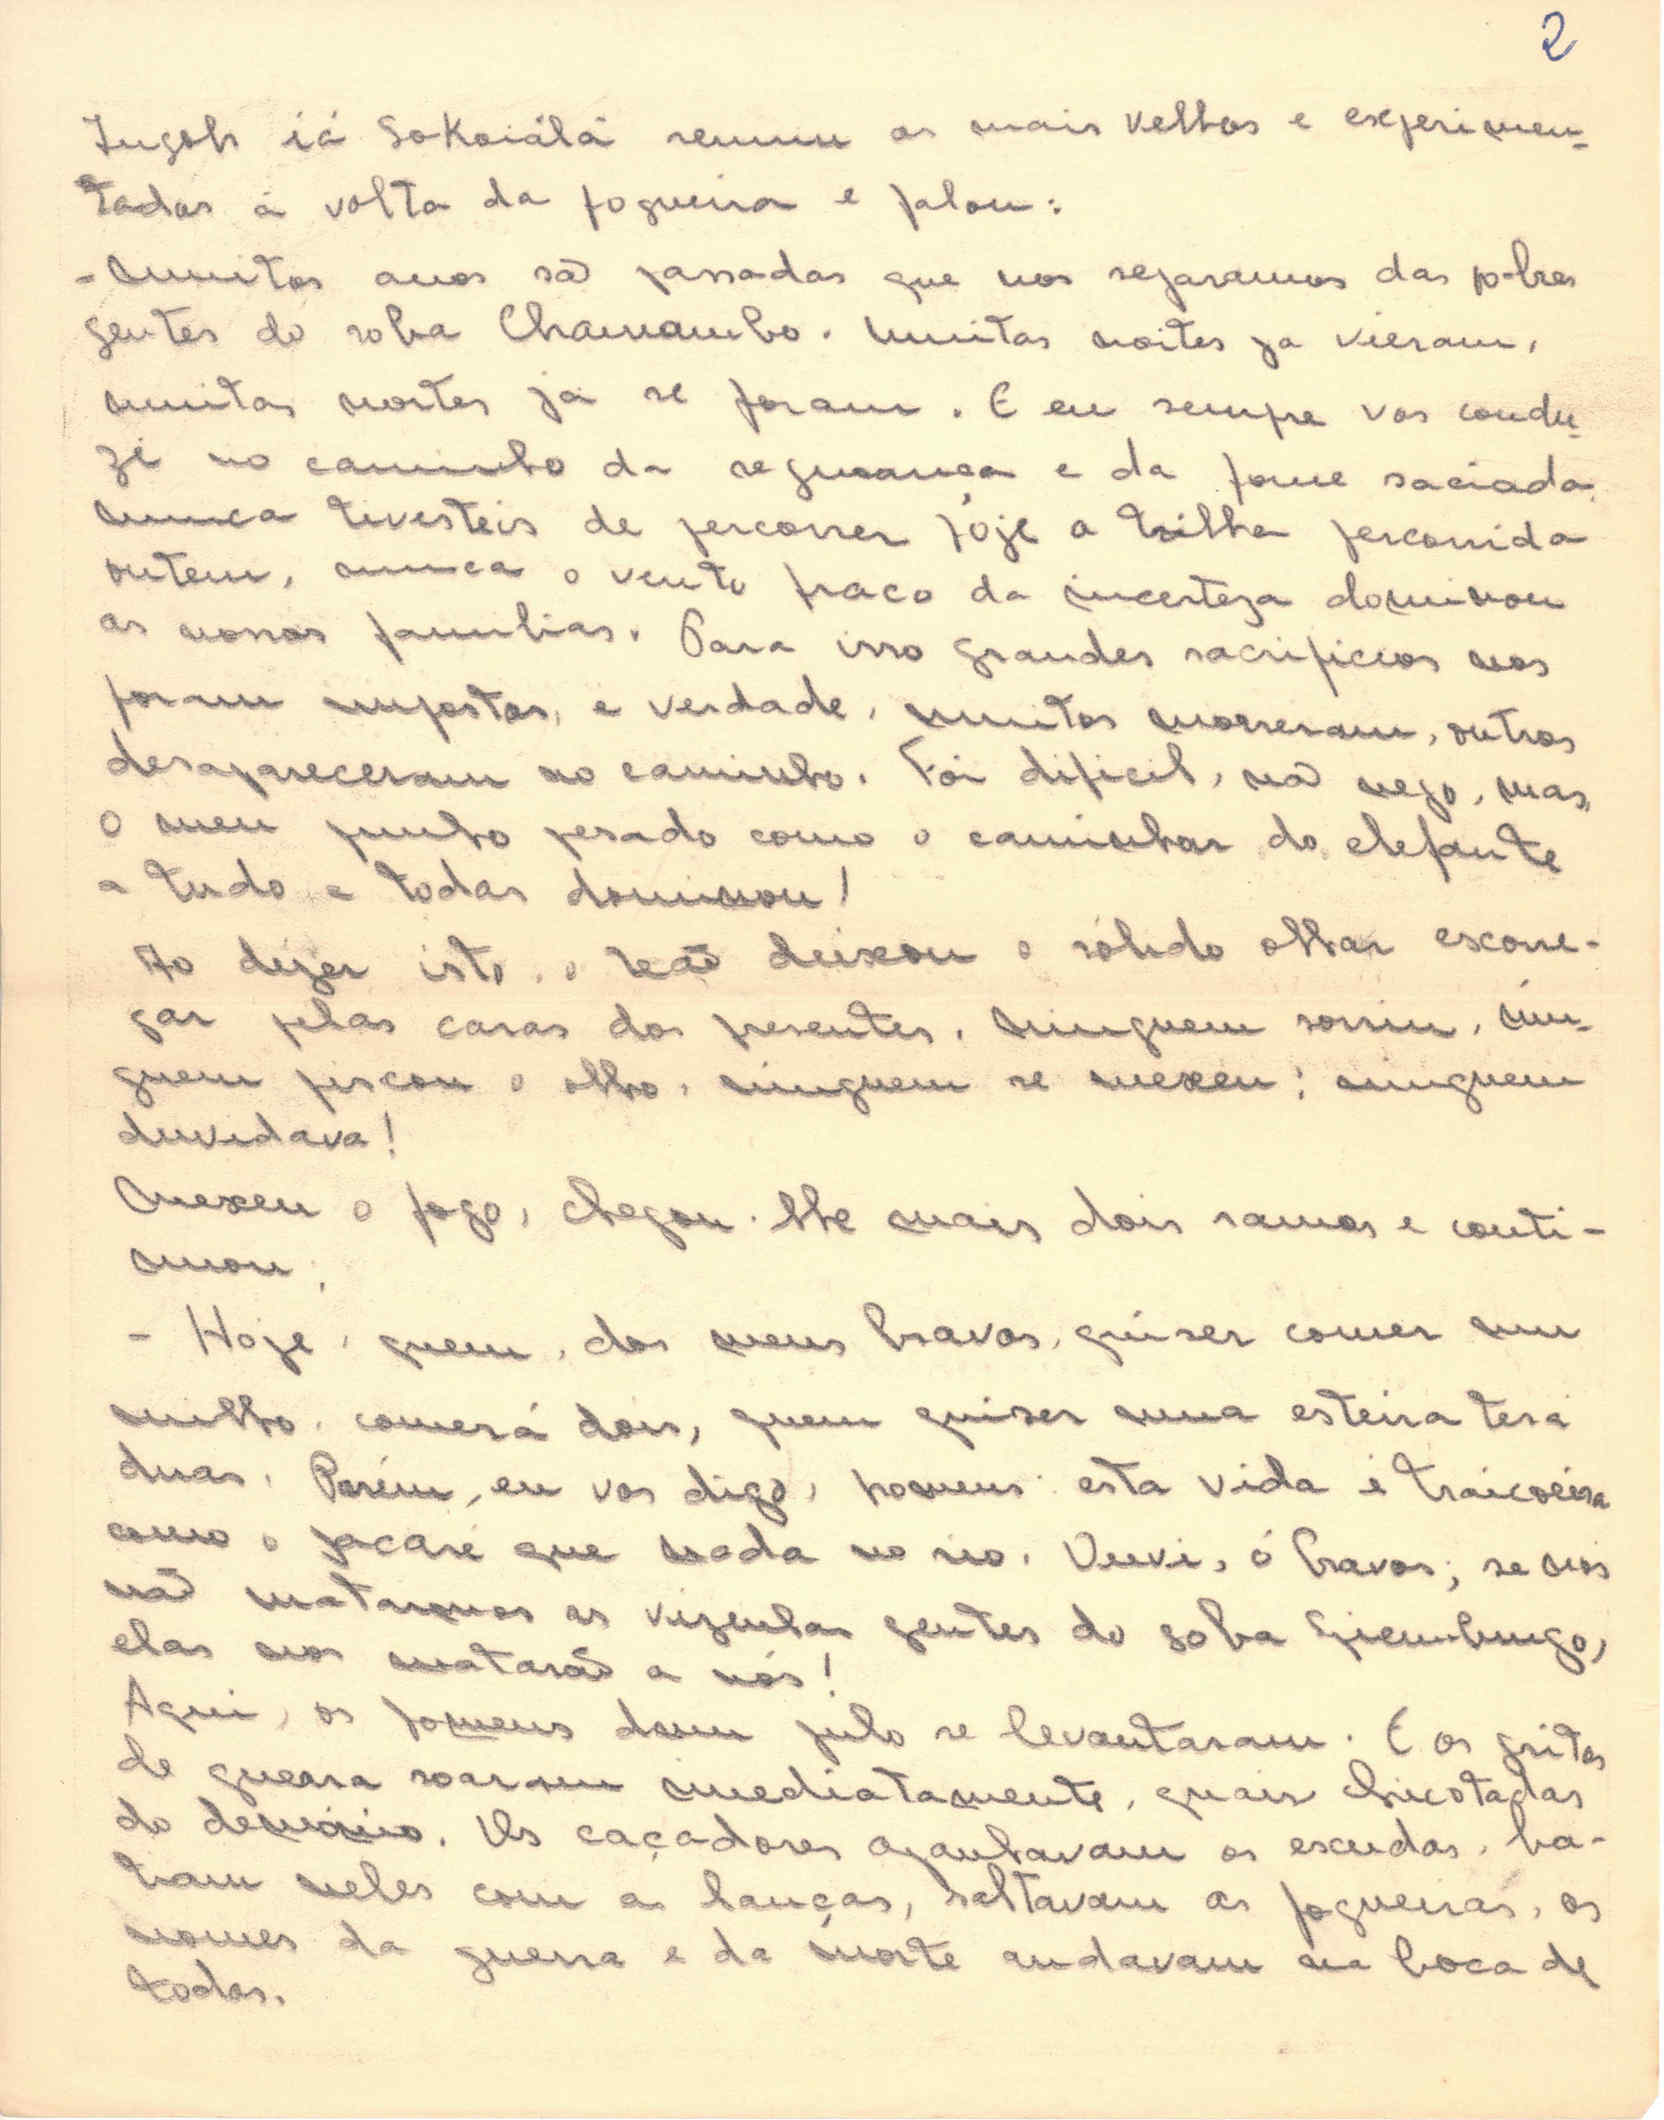 2
iá Sakaiálá reuniu os mais velhos e experimen-
tados à volta da fogueira e falou:
- Muitos anos são passados que nos separamos das pobres
gentes do soba Chamambo. Muitas noites já vieram,
muitas noites já se foram. E eu sempre vos condu-
zi no caminho da segurança e da fome saciada.
Nunca tivesteis de percorrer hoje a trilha percorrida
ontem, nunca o vento fraco da incerteza dominou
as nossas familias. Para isso grandes sacrificios nos
foram impostos, é verdade, muitos morreram, outros
desapareceram no caminho. Foi dificil, não nego, mas
o meu punho pesado como o caminhar do elefante
a tudo e todos dominou!
Ao dizer isto, o leão deixou o sólido olhar escorre-
gar pelas caras dos presentes. Ninguem sorriu, nin-
guem piscou o olho, ninguem se mexeu; ninguem
duvidava!
Mexeu o fogo, chegou-lhe mais dois ramos e conti-
nuou:
- Hoje, quem, dos meus bravos, quiser comer um
milho, comerá dois, quem quiser uma esteira terá
duas. Porém, eu vos digo, homens: esta vida é traiçoeira
como o jacaré que nada no rio. Ouvi, ó bravos; se nós
não matarmos as vizinhas gentes do soba
elas nos matarão a nós!
Aqui, os homens dum pulo se levantaram. E os gritos
de guerra soaram imediatamente, quais chicotadas
do demónio. Os caçadores apanhavam os escudos, ba-
tiam neles com as lanças, saltavam as fogueiras, os
nomes da guerra e da morte andavam na boca de
todos.